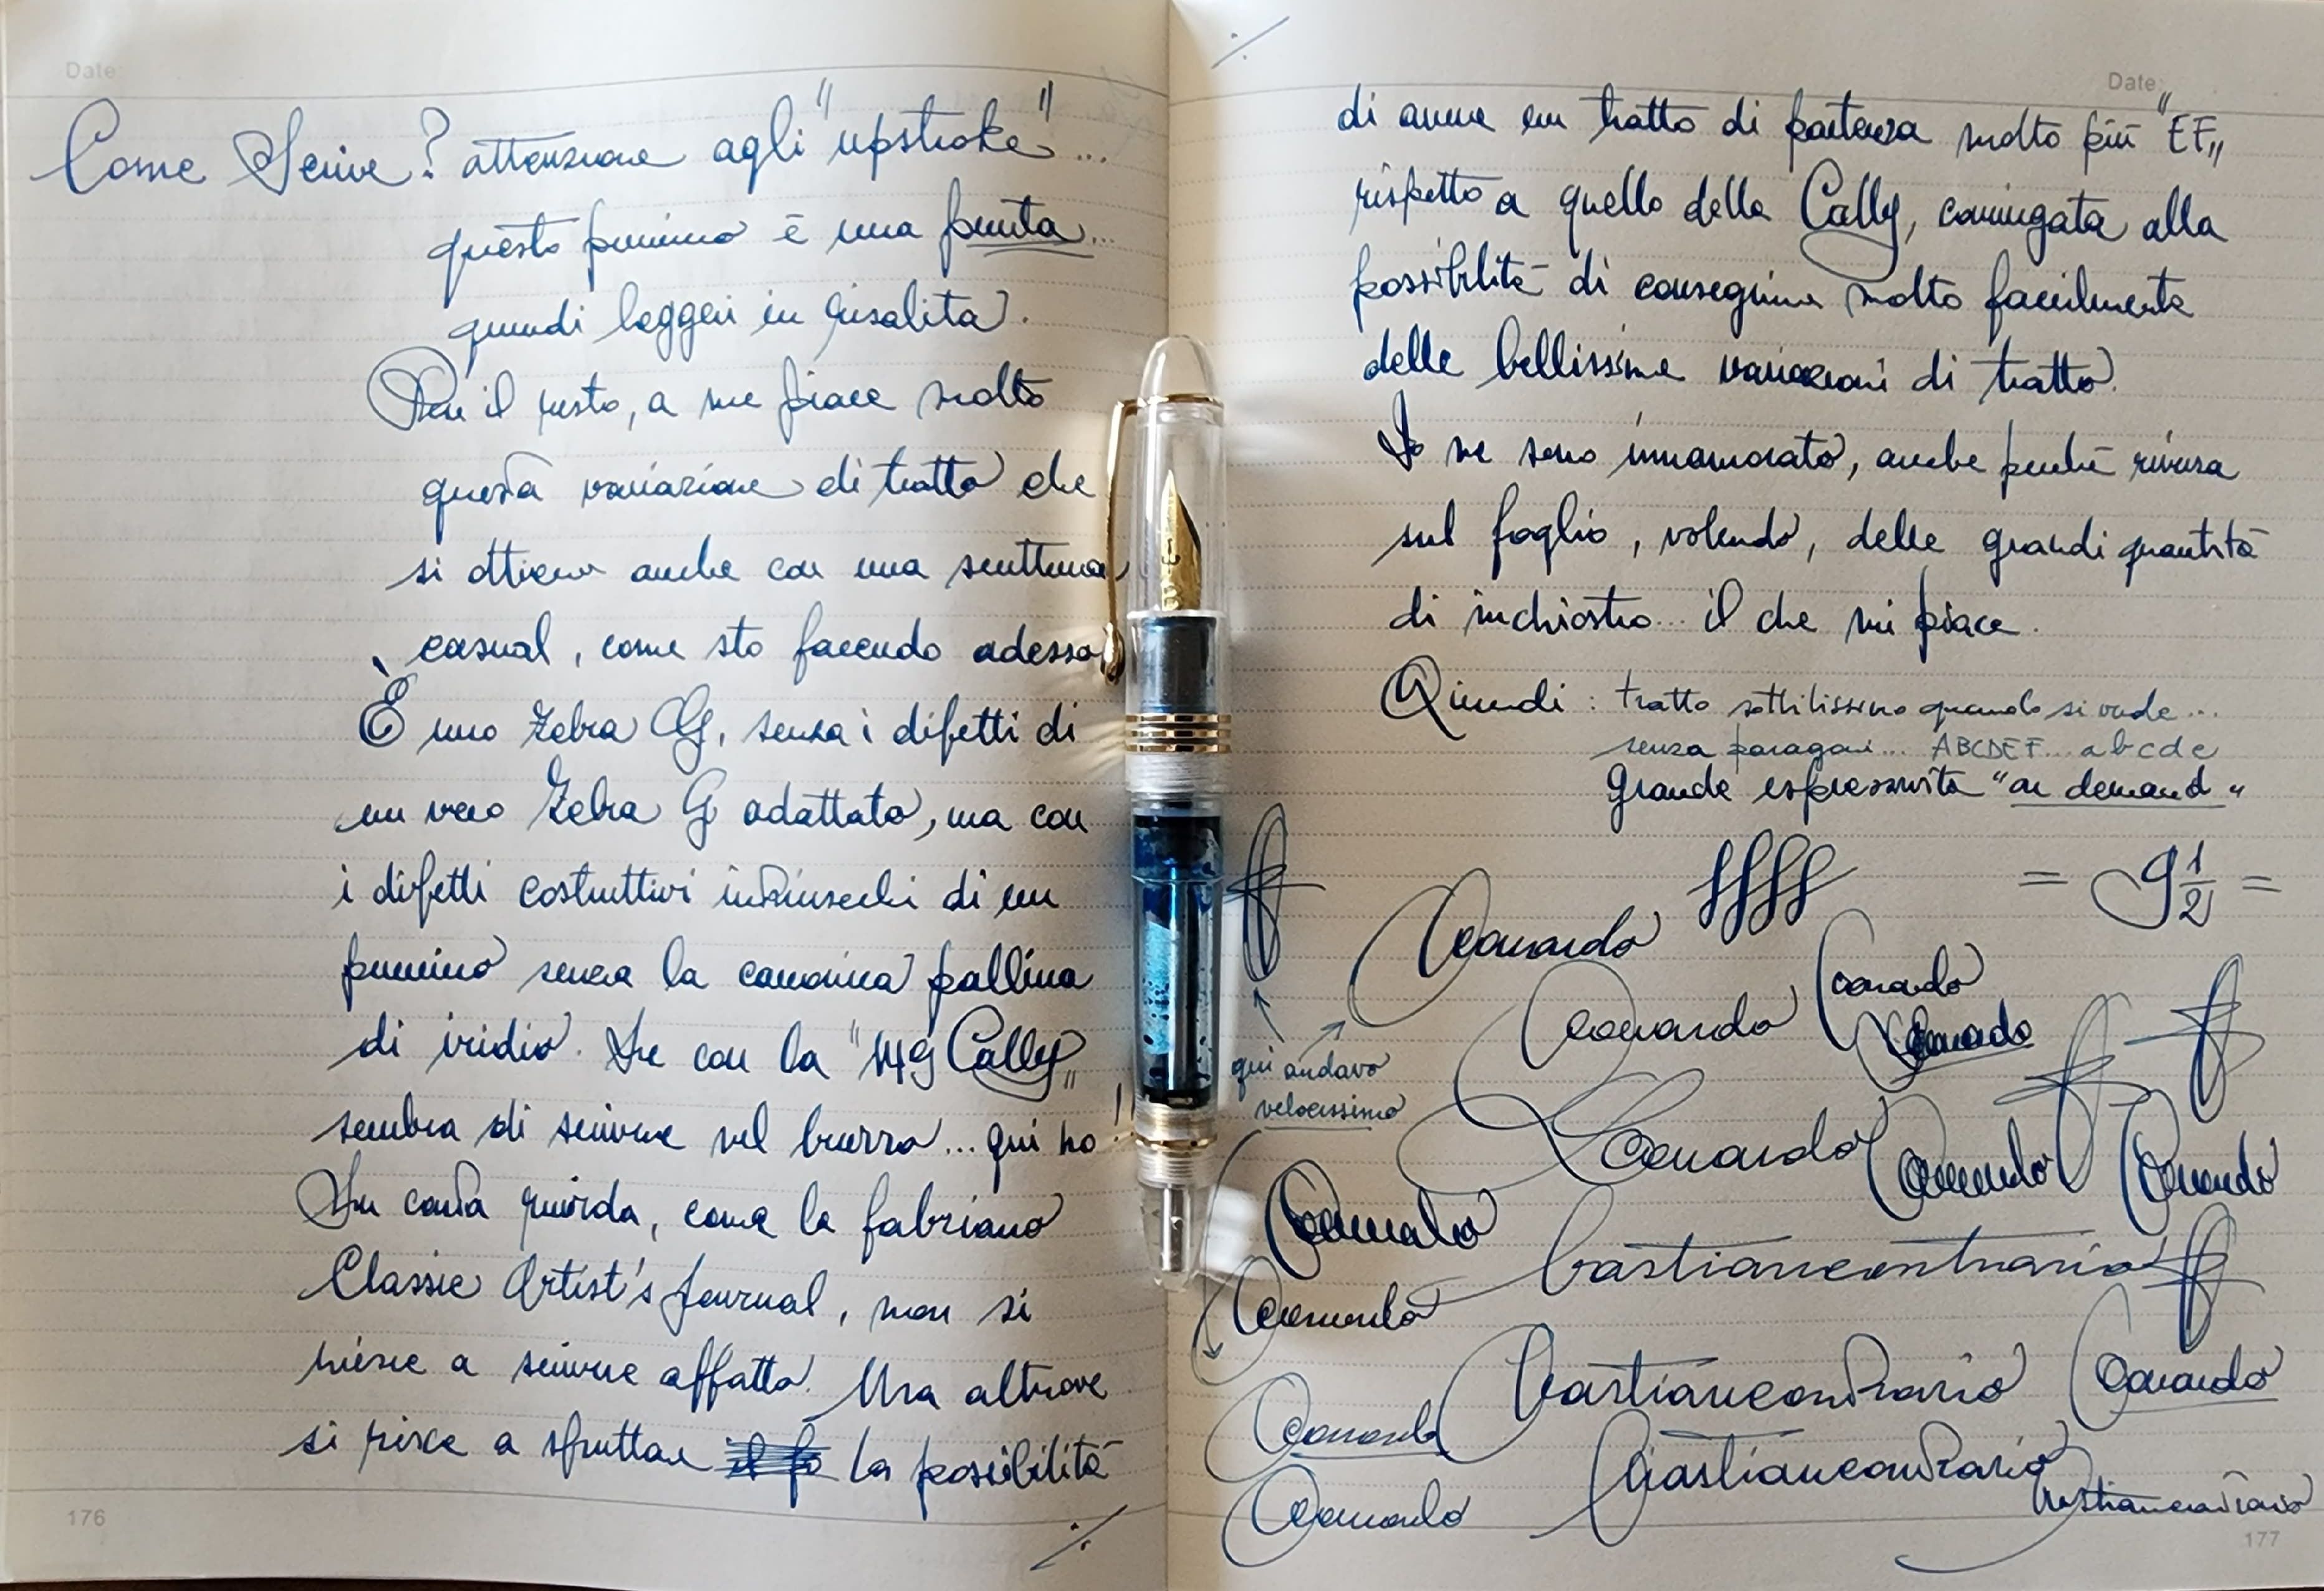 Date
Come Scrive? attenzione agli "upstroke"...
questo pennino è una punta...
quindi leggeri in risalita.
Per il resto, a me piace molto
questa variazione di tratto che
si ottiene anche con una scrittura
casual, come sto facendo adesso
È uno Zebra G, senza i difetti di
un vero Zebra G adattato, ma con
i difetti costruttivi intrinsechi di un
pennino senza la canonica pallina
di iridio. Se con la "M9 Cally"
sembra di scrivere nel burro... qui no!!
Su carta ruvida, come la fabriano
Classic Artist's Journal, non si
riesce a scrivere affatto. Ma altrove
si riesce a sfruttare la possibilità
176
./.
./.
Date
di avere un tratto di partenza molto più "EF"
rispetto a quello della Cally, coniugata alla
possibilità di conseguire molto facilmente
delle bellissime variazioni di tratto.
Io ne sono innamorato, anche perché riversa
sul foglio, volendo, delle grandi quantità
di inchiostro... il che mi piace.
Quindi: tratto sottilissimo quando si vuole...
senza paragoni... ABCDEF... abcde
Grande espressività "on demand"
= 9 1/2 =
Leonardo
Leonardo
Leonardo
Leonardo
qui andavo
velocissimo
Leonardo
Leonardo
Leonardo
Leonardo
bastiancontrario
Leonardo
bastiancontrario
Leonardo
Leonardo
bastiancontrario
bastiancontrario
Leonardo
177